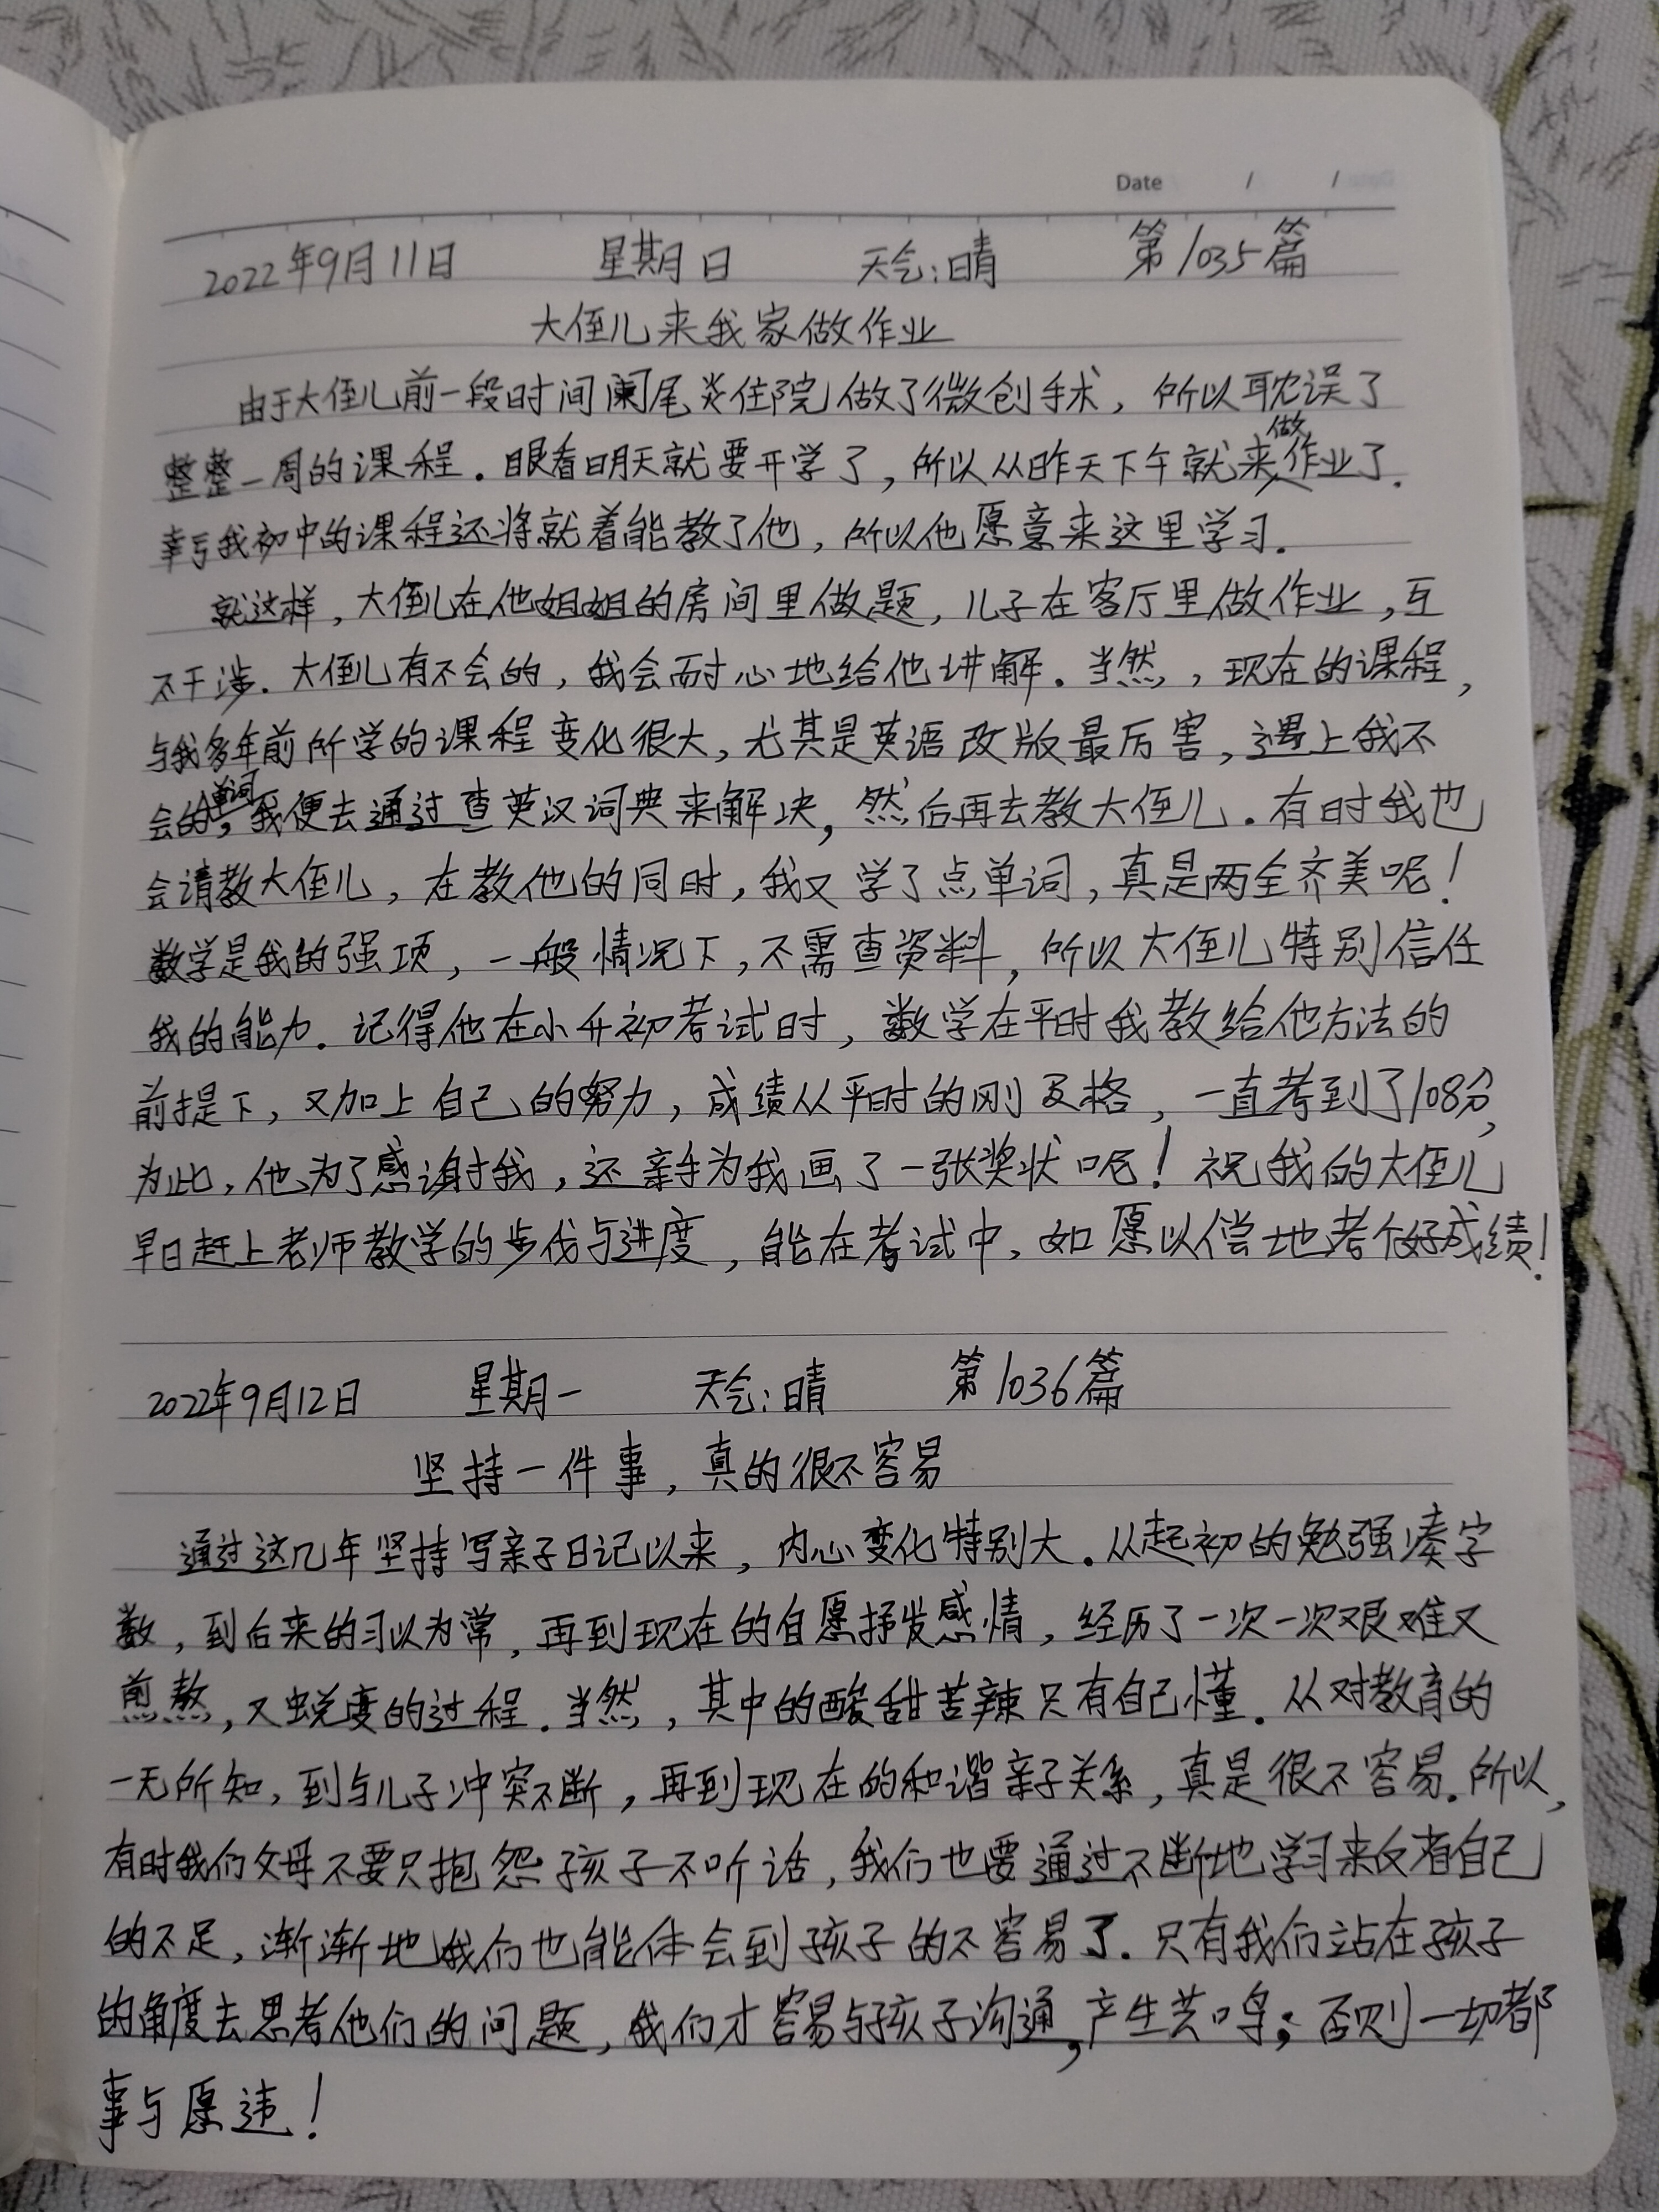 Date / /
2022年9月11日 星期日 天气:晴 第1035篇
大侄儿来我家做作业
由于大侄儿前一段时间阑尾炎住院做了微创手术，所以耽误了
整整一周的课程.眼看明天就要开学了，所以从昨天下午就来做作业了.
幸亏我初中的课程还将就着能教了他，所以他愿意来这里学习.
就这样，大侄儿在他姐姐的房间里做题，儿子在客厅里做作业，互
不干涉.大侄儿有不会的，我会耐心地给他讲解.当然，现在的课程，
与我多年前所学的课程变化很大，尤其是英语改版最厉害，遇上我不
会的单词，我便去通过查英汉词典来解决，然后再去教大侄儿.有时我也
会请教大侄儿，在教他的同时，我又学了点单词，真是两全齐美呢！
数学是我的强项，一般情况下，不需查资料，所以大侄儿特别信任
我的能力.记得他在小升初考试时，数学在平时我教给他方法的
前提下，又加上自己的努力，成绩从平时的刚及格，一直考到了108分，
为此，他为了感谢我，还亲手为我画了一张奖状呢！祝我的大侄儿
早日赶上老师教学的步伐与进度，能在考试中，如愿以偿地考个好成绩！
2022年9月12日 星期一 天气:晴 第1036篇
坚持一件事，真的很不容易
通过这几年坚持写亲子日记以来，内心变化特别大.从起初的勉强凑字
数，到后来的习以为常，再到现在的自愿抒发感情，经历了一次一次艰难又
煎熬，又蜕变的过程.当然，其中的酸甜苦辣只有自己懂.从对教育的
一无所知，到与儿子冲突不断，再到现在的和谐亲子关系，真是很不容易.所以，
有时我们父母不要只抱怨孩子不听话，我们也要通过不断地学习来反省自己
的不足，渐渐地我们也能体会到孩子的不容易了.只有我们站在孩子
的角度去思考他们的问题，我们才容易与孩子沟通，产生共鸣；否则一切都
事与愿违！